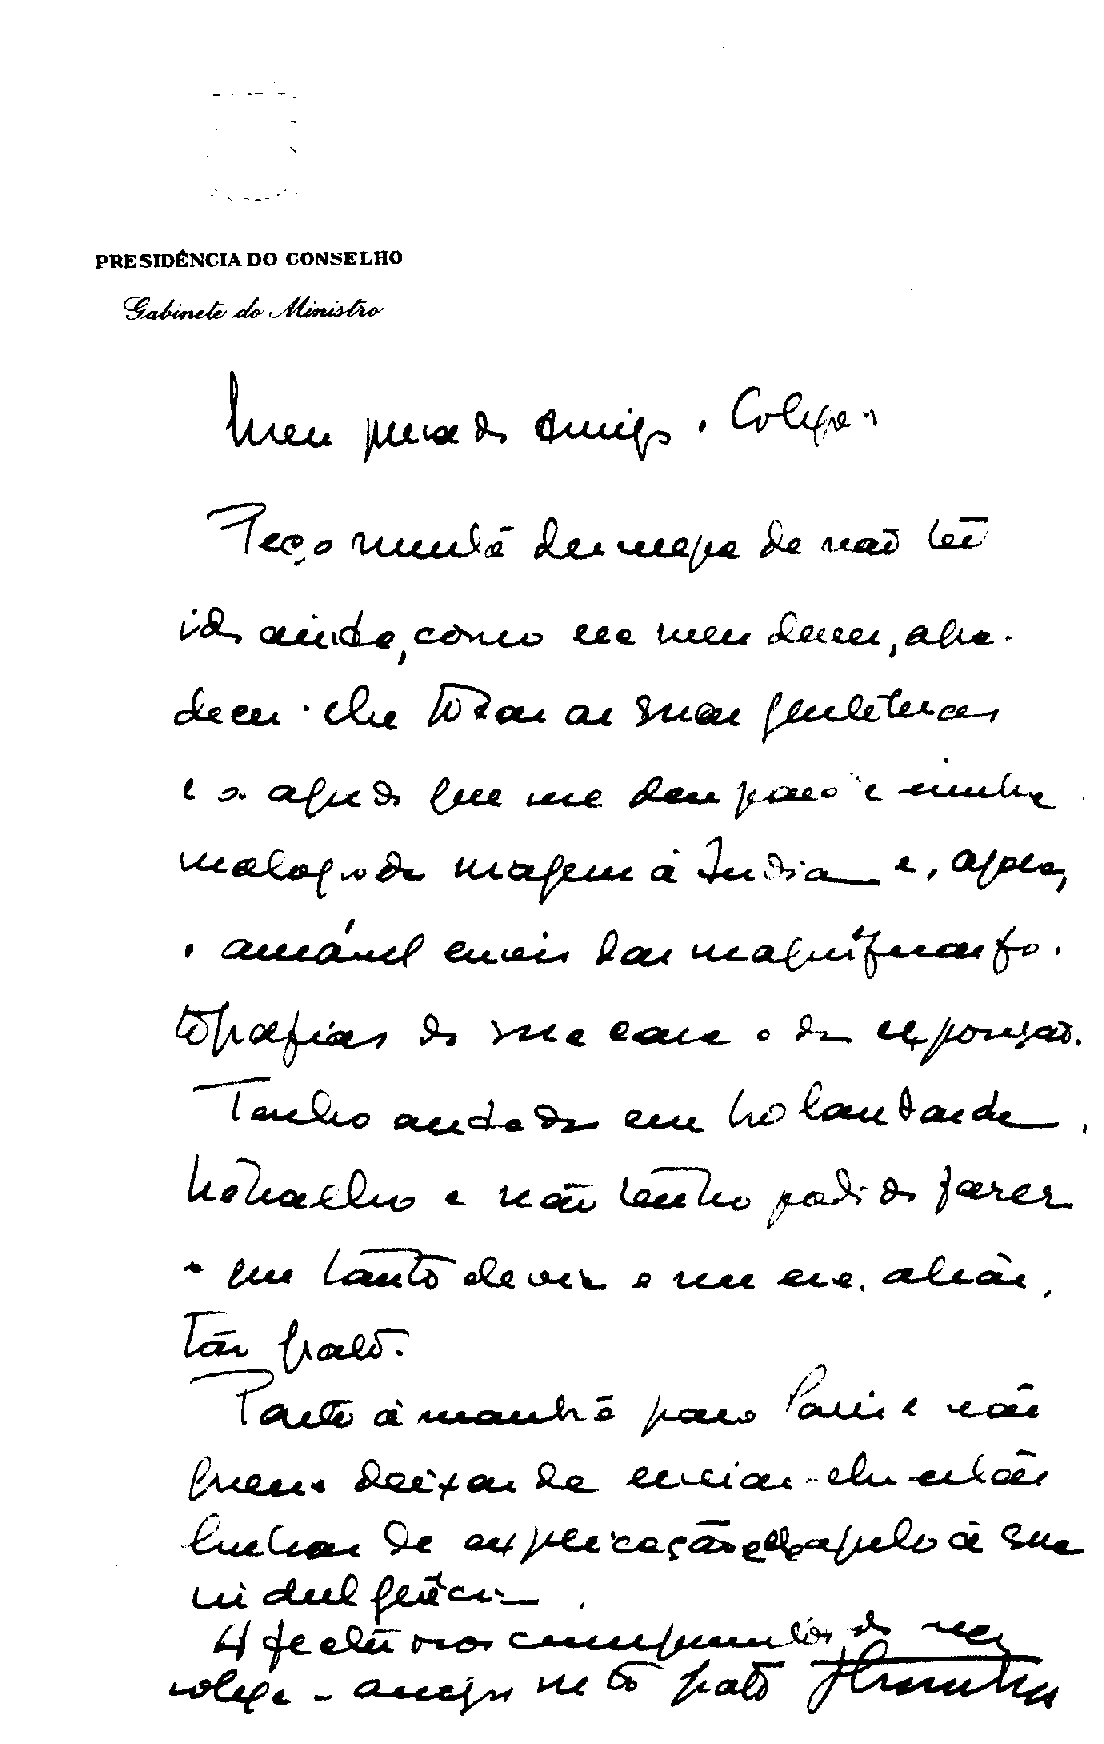 PRESIDÊNCIA DO CONSELHO
Gabinete do Ministro
Meu prezado amigo e Colega
Peço muita desculpa de não ter
ido ainda, como era meu dever, agra-
decer-lhe todas as suas gentilezas
e a ajuda que me deu para a minha
malograda viagem à India e, agora,
o amável envio das magníficas fo-
tografias da sua casa e da exposição.
Tenho andado em bastante
trabalho e não tenho podido fazer
o que tanto devia e me era, aliás,
tão grato.
Parto àmanhã para Paris e não
quero deixar de enviar-lhe estas
linhas de explicação e de apelo à sua
indulgência.
Afectuosos cumprimentos do seu
colega e amigo muito grato